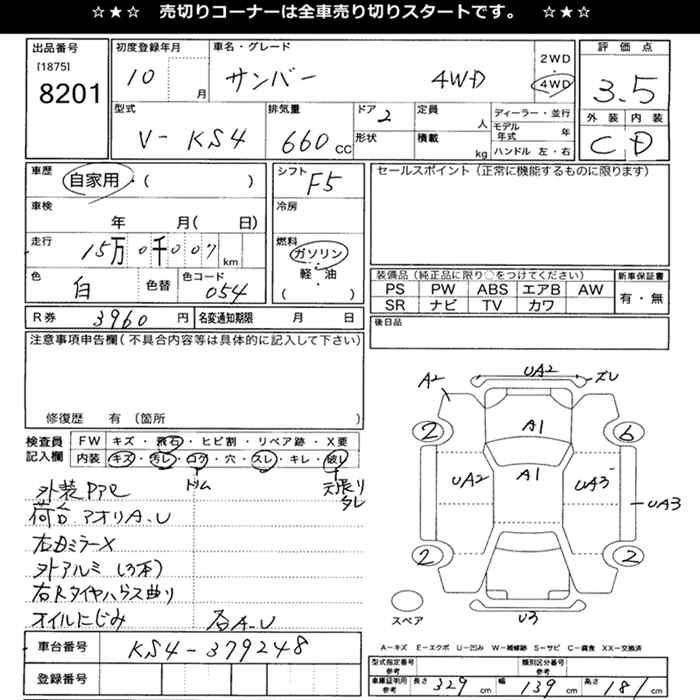 ☆★☆ 売切りコーナーは全車売り切りスタートです。 ☆★☆
出品番号
[1875]
8201
初度登録年月
10
月
車名・グレード
サンバー 4WD
2WD
4WD
評価点
3.5
外装 内装
C D
型式
V-KS4
排気量
660 CC
ドア 2
形状
定員
人
積載
kg
ディーラー・並行
モデル年式 年
ハンドル 左・右
車歴
自家用・( )
車検
年 月( 日)
走行
15万0千007 km
色
白
色替
色コード
054
シフト
F5
冷房
燃料
ガソリン
・
軽・油
( )
セールスポイント (正常に機能するものに限ります)
装備品 (純正品に限り○をつけてください)
PS PW ABS エアB AW
SR ナビ TV カワ
新車保証書
有・無
後日品
R券 3960 円
名変通知期限 月 日
注意事項申告欄(不具合内容等は具体的に記入して下さい)
修復歴 有 (箇所 )
検査員記入欄
FW キズ・飛石・ヒビ割・リペア跡・X要
内装 キズ・汚レ・コゲ・穴・スレ・キレ・破レ
トリム
天張りタレ
荷台 アオリA.U
右Dミラー X
外アルミ (3本)
右Rタイヤハウス曲り
オイルにじみ
A.U
車台番号 KS4-379248
登録番号
A2
UA2
ズレ
2
A1
6
UA2
A1
UA3
UA3
2
2
U3
スペア
A-キズ E-エクボ U-凹み W-補修跡 S-サビ C-腐食 XX-交換済
型式指定番号
参考
類別区分番号
参考
車庫証明用
参考
長さ 329 cm
幅 139 cm
高さ 181 cm